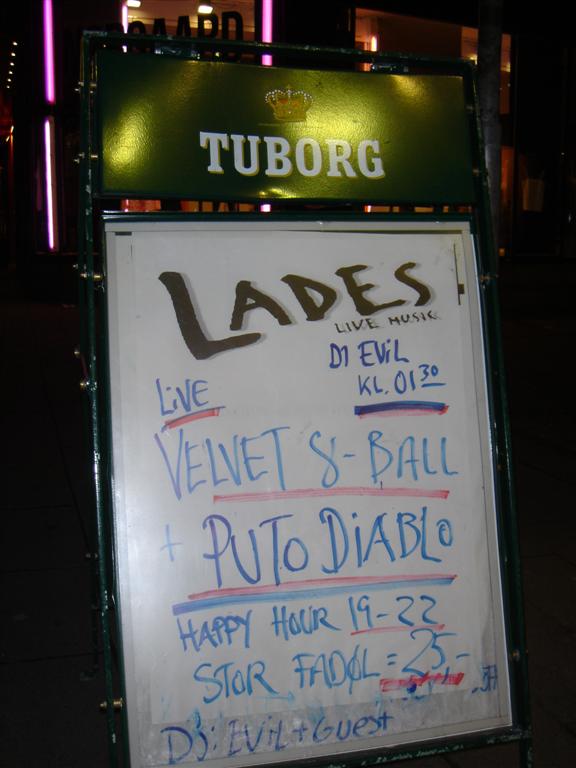 TUBORG
LADES
LIVE MUSIC
DJ EVIL
KL. 01 30
LIVE
VELVET 8-BALL
+ PUTO DIABLO
HAPPY HOUR 19-22
STOR FADØL = 25,-
DJ: EVIL + GUEST